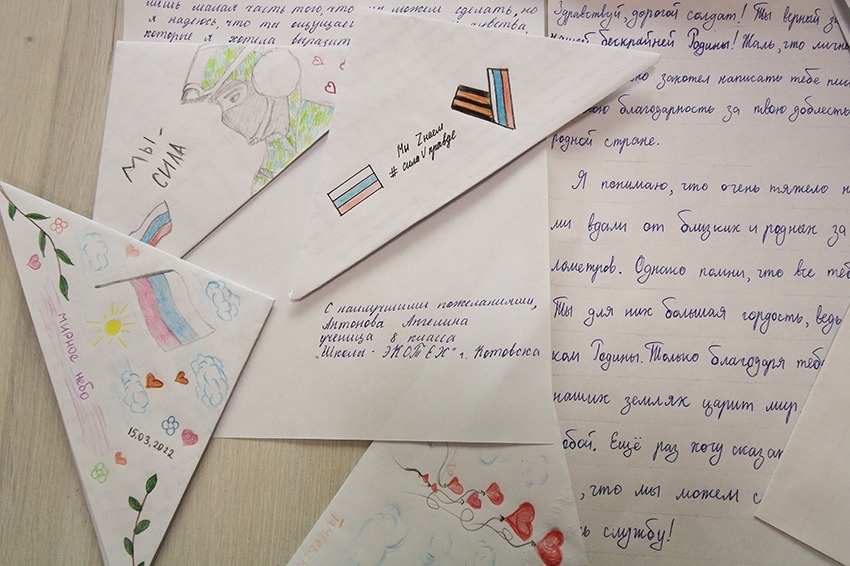 лишь малая часть того, что мы можем сделать, но
я надеюсь, что ты ощущаешь
которые я хотела выразить
Мы -
сила
Мы Zнаем
# сила V правде
мирное небо
15.03.2022
С наилучшими пожеланиями,
Антонова Ангелина
ученица 8 класса
"Школа - ЭКОТЕХ" г. Котовска
Здравствуй, дорогой солдат! Ты верный
нашей бескрайней Родины! Жаль, что лично
захотел написать тебе
благодарность за твою доблесть
родной стране.
Я понимаю, что очень тяжело
ми вдали от близких и родных за
лометров. Однако помни, что все
Ты для них большая гордость, ведь
Родины. Только благодаря
наших землях царит мир,
обой. Ещё раз хочу сказать
, что мы можем с
службу!